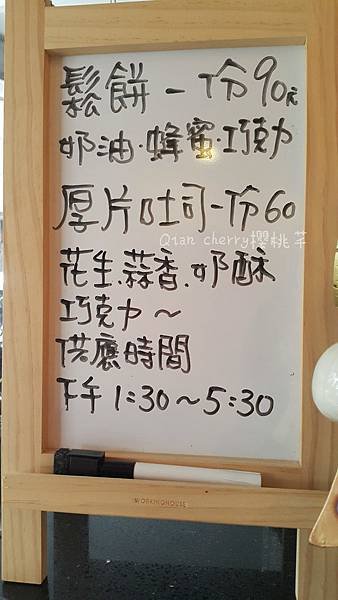 鬆餅 - 份90元
奶油·蜂蜜·巧克力
厚片吐司-份60
Qian cherry櫻桃芊
花生.蒜香.奶酥
巧克力~
供應時間
下午1:30~5:30
WORKINGHOUSE